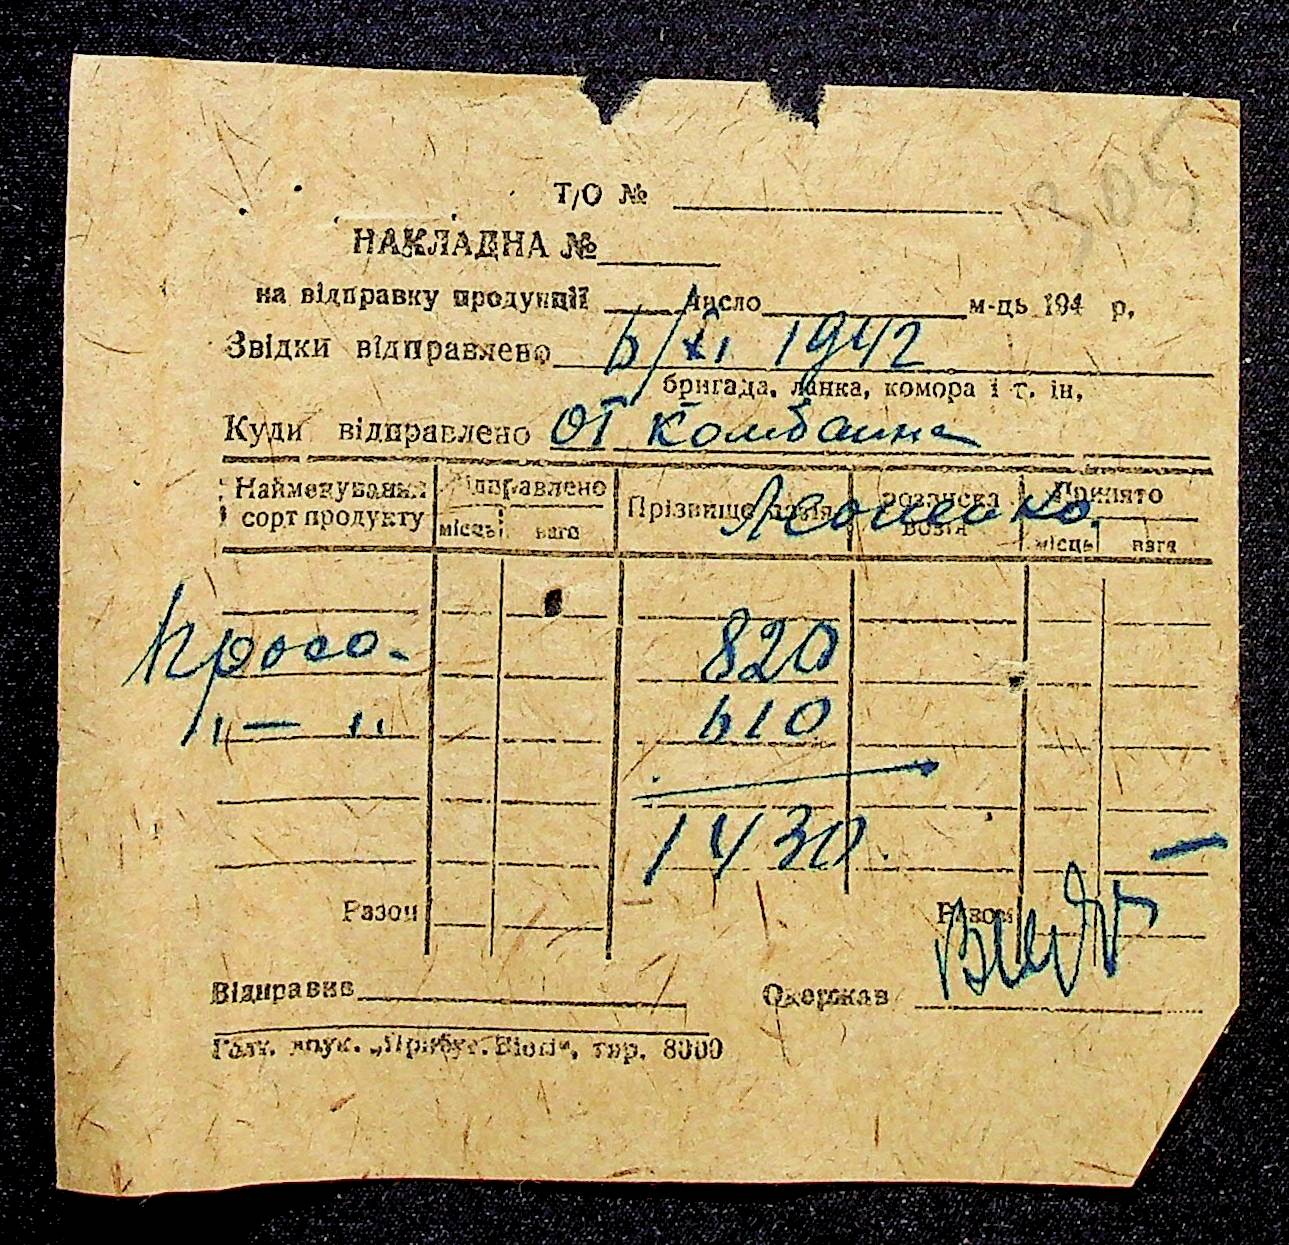 305
Т/О №
НАКЛАДНА №
на відправку продукції число м-ць 194 р.
Звідки відправлено 6/XI 1942
бригада, ланка, комора і т. ін.
Куди відправлено От комбаина
Найменування сорт продукту Відправлено місць вага Прізвище возія розписка возія Принято місць вага
Просо.
"—" 
820
610
1430.
Разом Разом
Відправив Одержав
Голт. друк. „Прибуг. Вісті“, тир. 8000